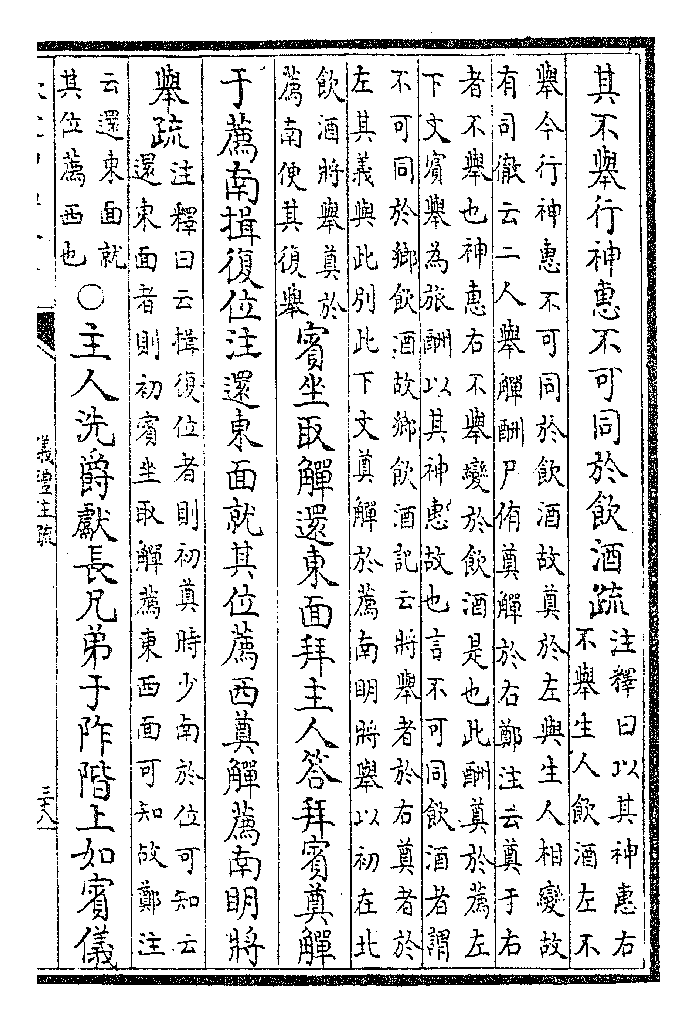 其不舉行神惠不可同於飲酒疏
注釋曰以其神惠右
不舉生人飲酒左不
舉今行神惠不可同於飲酒故奠於左與生人相變故
有司徹云二人舉觶酬尸侑奠觶於右鄭注云奠于右
者不舉也神惠右不舉變於飲酒是也此酬奠於薦左
下文賓舉為旅酬以其神惠故也言不可同飲酒者謂
不可同於鄉飲酒故鄉飲酒記云將舉者於右奠者於
左其義與此別此下文奠觶於薦南明將舉以初在北
飲酒將舉奠於
薦南便其復舉
賓坐取觶還東面拜主人答拜賓奠觶
于薦南揖復位注還東面就其位薦西奠觶薦南明將
舉疏
注釋曰云揖復位者則初奠時少南於位可知云
還東面者則初賓坐取觶薦東西面可知故鄭注
云還東面就
其位薦西也
○主人洗爵獻長兄弟于阼階上如賓儀
儀禮註疏